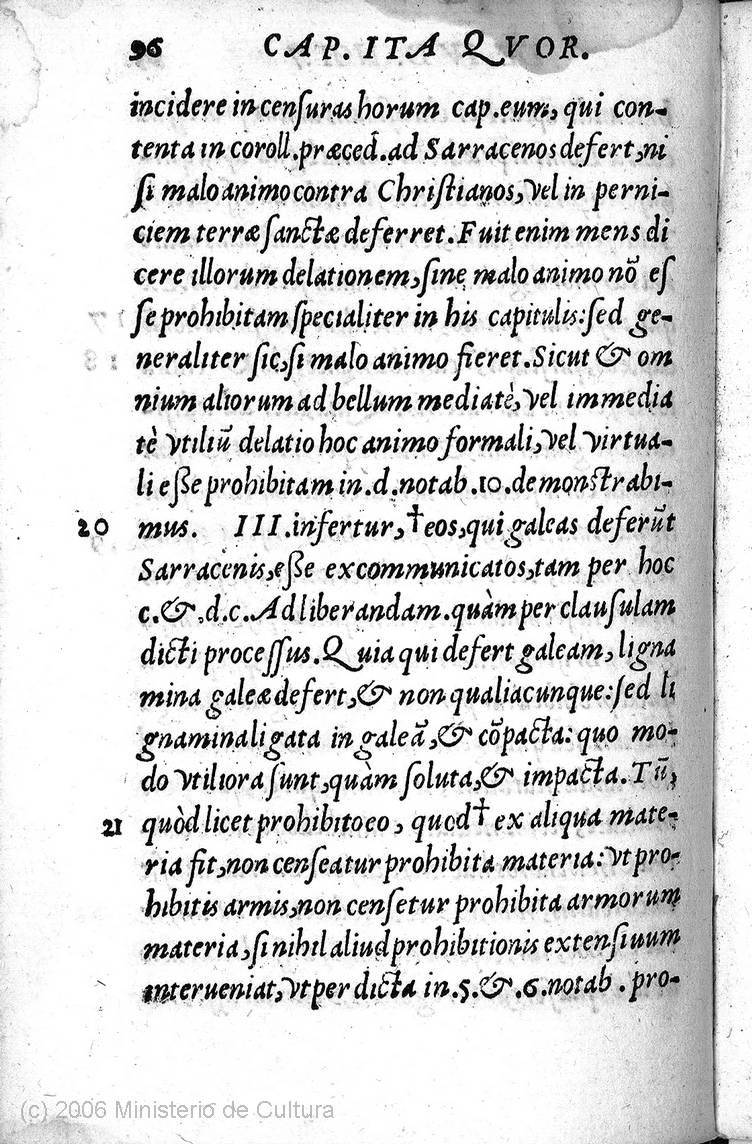 96 CAP. ITA QVOR.
incidere in censuras horum cap.eum, qui con-
tenta in coroll.præced.ad Sarracenos defert,ni
si malo animo contra Christianos, vel in perni-
ciem terræ sanctæ deferret. Fuit enim mens di
cere illorum delationem, sine malo animo nõ es
se prohibitam specialiter in his capitulis: sed ge-
neraliter sic, si malo animo fieret. Sicut & om
nium aliorum ad bellum mediatè, vel immedia
tè vtiliũ delatio hoc animo formali, vel virtua-
li esse prohibitam in .d. notab .10. demonstrabi-
20 mus. III. infertur, †eos, qui galeas deferũt
Sarracenis, esse excommunicatos, tam per hoc
c. &.d.c. Ad liberandam. quàm per clausulam
dicti processus. Quia qui defert galeam, ligna
mina galeæ defert, & non qualiacunque: sed li
gnamina ligata in galeã, & cõpacta: quo mo-
do vtiliora sunt, quàm soluta, & impacta. Tũ,
21 quòd licet prohibito eo, quod † ex aliqua mate-
ria fit, non censeatur prohibita materia: vt pro-
hibitis armis, non censetur prohibita armorum
materia, si nihil aliud prohibitionis extensiuum
interueniat, vt per dicta in .5. & .6. notab . pro-
(c) 2006 Ministerio de Cultura